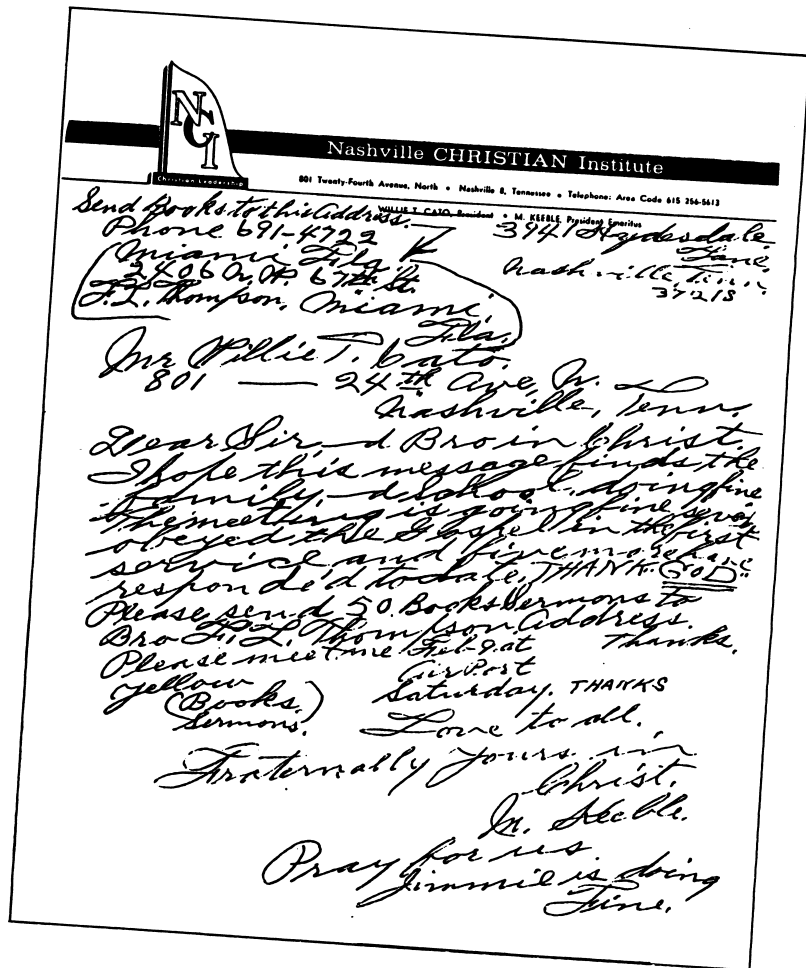 NCI
Christian Leadership
Nashville CHRISTIAN Institute
801 Twenty-Fourth Avenue, North • Nashville 8, Tennessee • Telephone: Area Code 615 256-5613
WILLIE T. CATO, President • M. KEEBLE, President Emeritus
Send Books to this Address.
Phone 691-4722
Miami Fla
2406 N.W. 67th St.
F.L. Thompson, Miami,
Fla.
3941 Hydesdale
Lane,
Nashville, Tenn.
37218
Mr Willie T. Cato.
801 — 24th Ave, N.
Nashville, Tenn.
Dear Sir, -d Bro in Christ.
I hope this message finds the
family, -d school, doing fine
The meeting is going fine seven
obeyed the Gospel in the first
service and five more have
responde'd to date, THANK "GOD"
Please send 50 Books Sermons to
Bro F. L. Thompson address.
Thanks.
Please meet me Feb-9. at
Air Port
Saturday. THANKS
yellow
(Books)
Sermons.
Love to all.
Fraternally yours in
Christ.
M. Keeble.
Pray for us
Jimmie is doing
Fine.